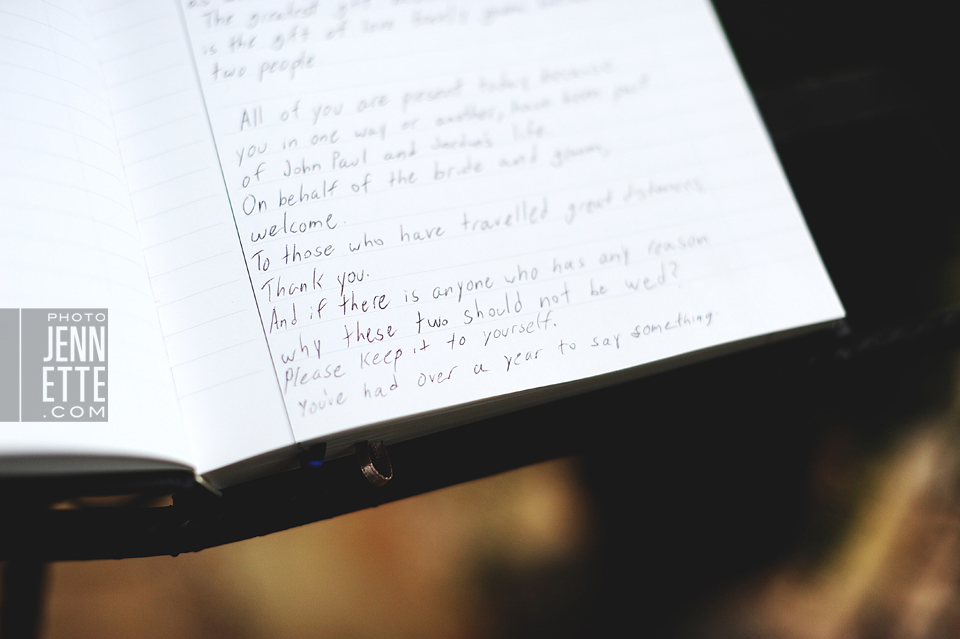 The greatest gift
is the gift of love
two people
All of you are present today because
you in one way or another, have been part
of John Paul and Jordan's life.
On behalf of the bride and groom,
welcome.
To those who have travelled great distances,
Thank you.
And if there is anyone who has any reason
why these two should not be wed?
Please keep it to yourself.
You've had over a year to say something.
PHOTO
JENN
ETTE
.COM